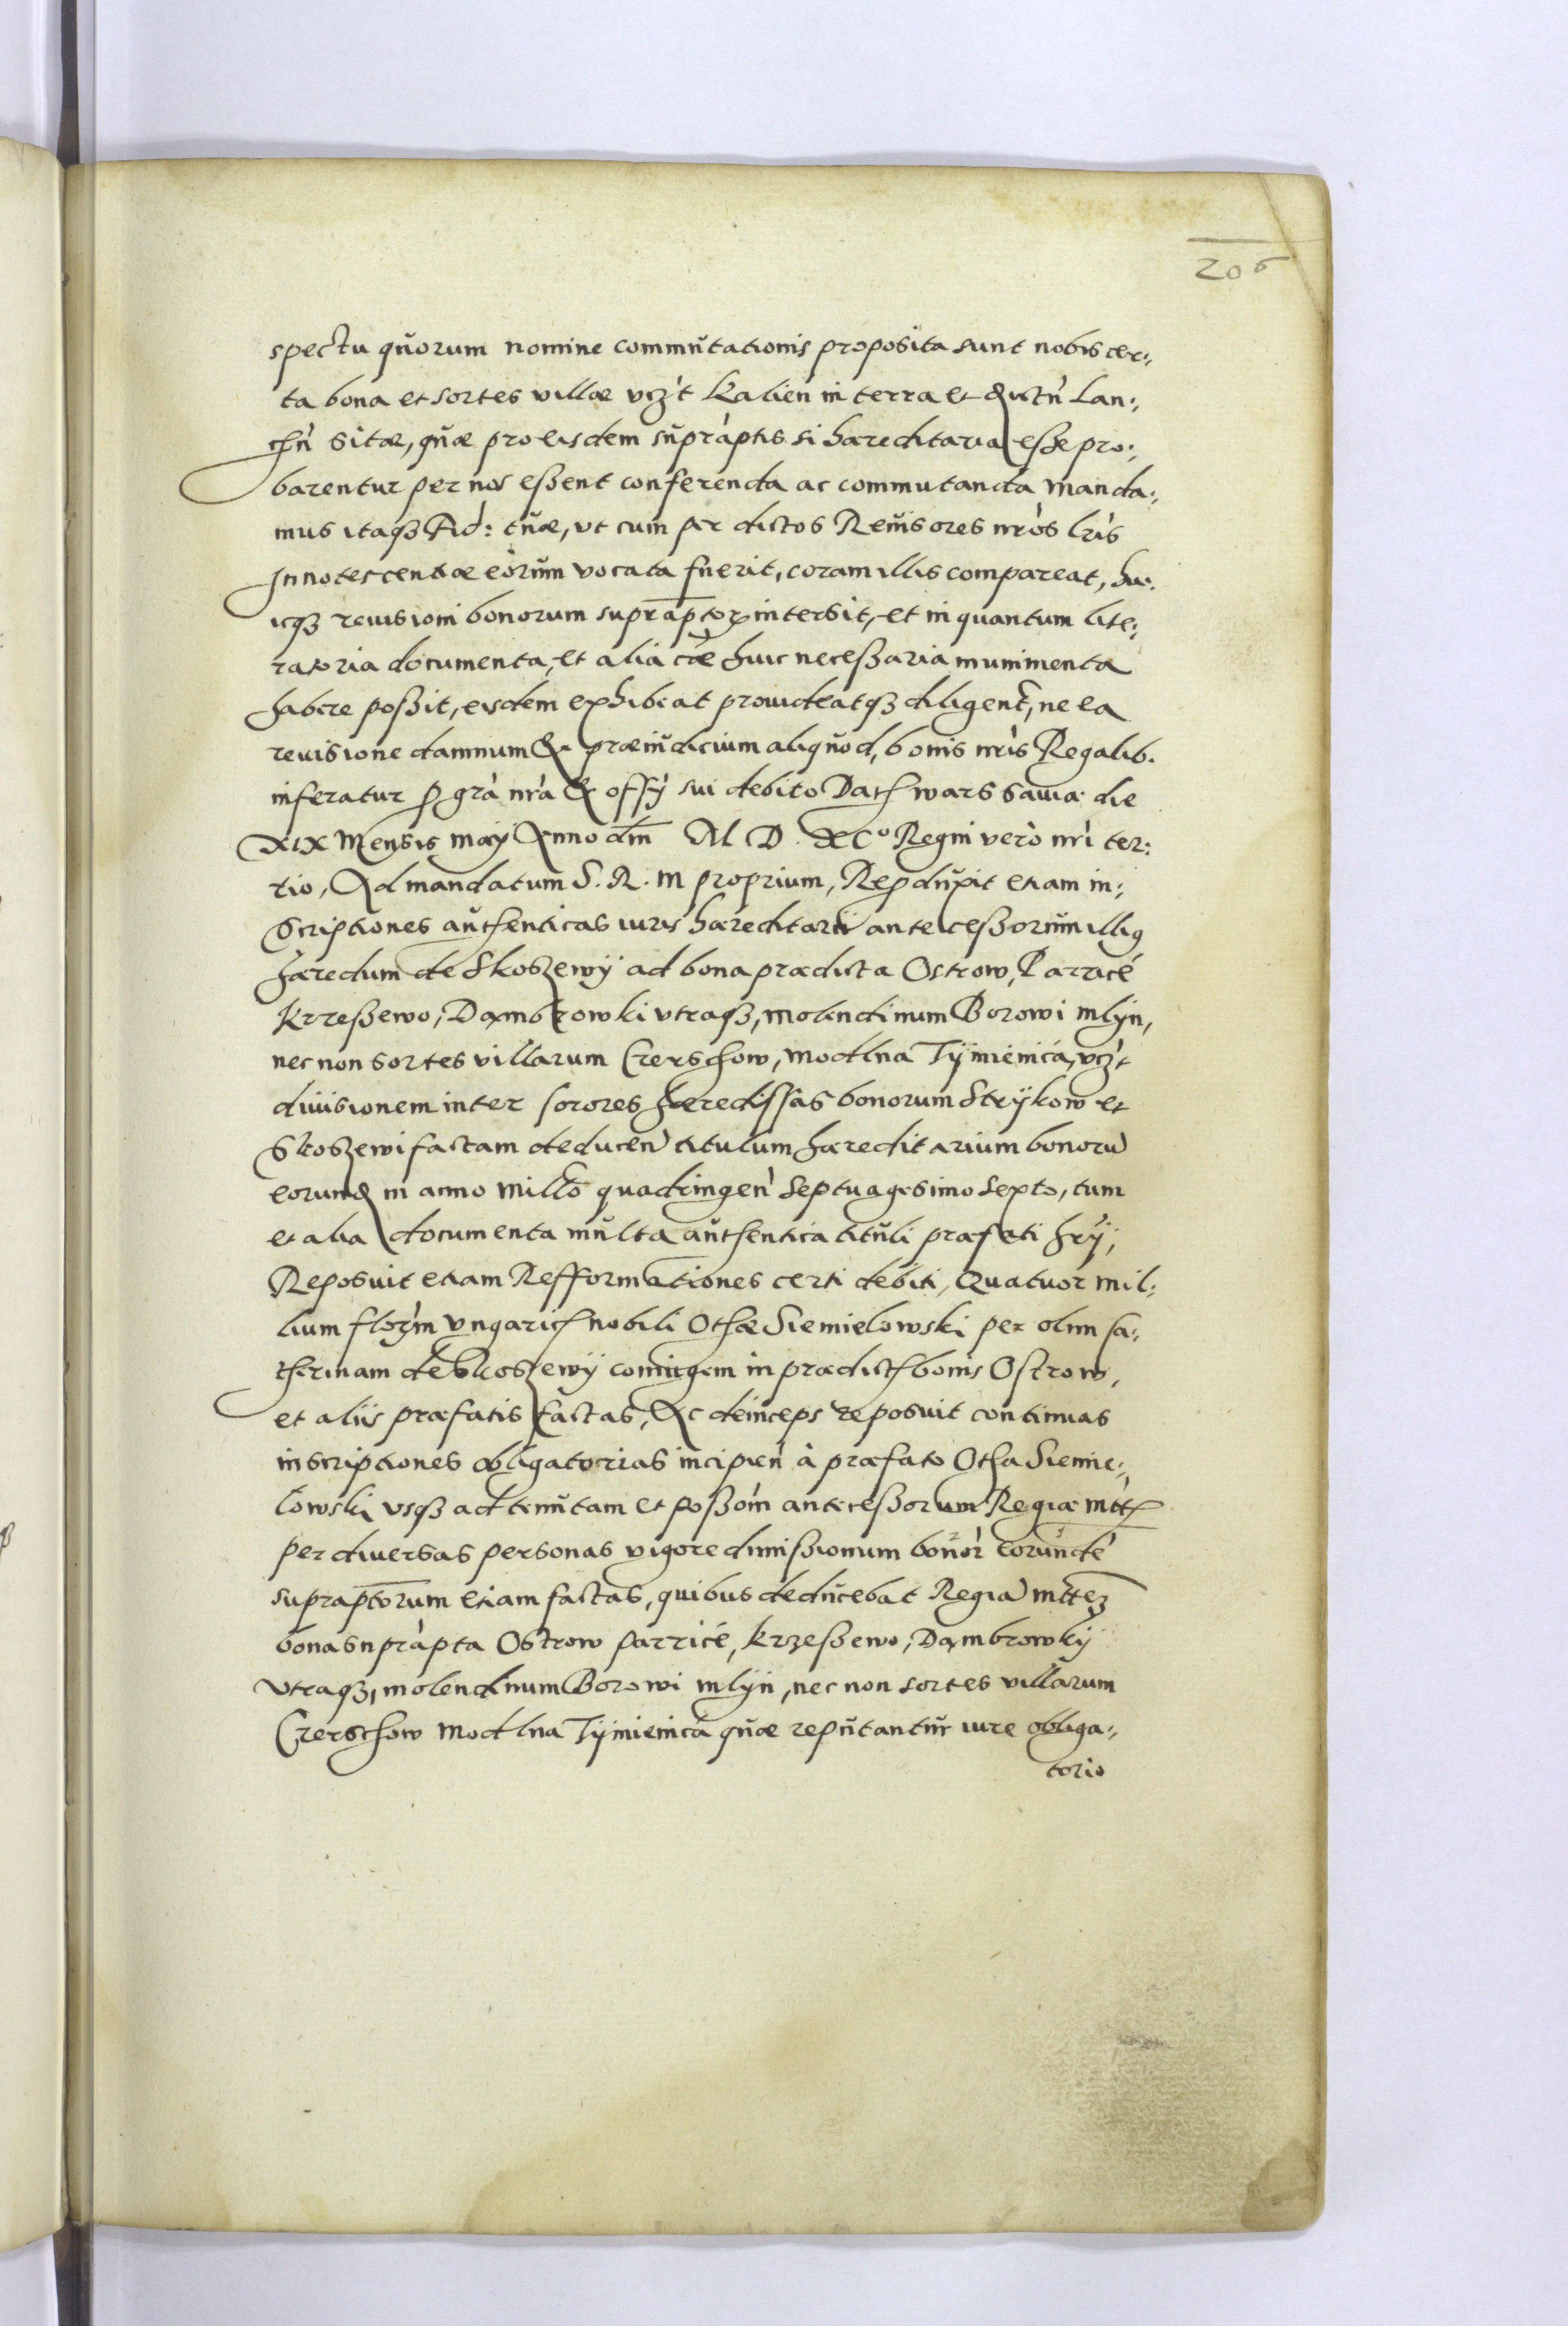 206
spectu quorum nomine commutationis proposita sunt nobis cer:
ta bona et sortes villæ vcz't Kalien in terra et distn̄ Lan:
chn̄ sitæ, quæ pro eisdem supràptis si hæreditaria esse pro:
barentur per nos eßent conferenda ac commutanda manda:
mus itaqȝ Fid: tuæ, vt cum per dictos Reuisores nr̀os lr̀is
Innotescentiæ eorum vocata fuerit, coram illis compareat, hu:
icqȝ reuisioni bonorum suprāptoꝝ intersit, et in quantum lite:
ratoria documenta, et alia cāe huic neceßaria munimenta
habere poßit, eisdem exhibeat prouideatqȝ diligent, ne ea
reuisione damnum & præiudicium aliquod, bonis nr̀is Regalib.
inferatur ꝓ grà nr̀a & offÿ sui debito Dat Warssauiæ die
XIX Mensis maÿ Anno dm̄ M D XCº Regni verò nr̀i ter:
tio, Ad mandatum S. R. M proprium, Reproduxit etiam in:
scriptiones authenticas iuris hæreditarii anteceßorum illiꝰ
hæredum de Skoszewÿ ad bona prædicta Ostrow, Parzicé
Krzeßewo, Dąmbrowki vtraqȝ, molendinum Borowi mlÿn,
nec non sortes villarum Czerschow, Modlna Tÿmienica, vcz't
diuisionem inter sorores hæredissas bonorum Strÿkow et
Skoszewi factam deducen̄ titulum hæreditarium bonorū
eorund in anno millō quadringen̄ septuagesimo sexto, tum
et alia documenta multa authentica tituli præfati hr̄ÿ,
Reposuit etiam Refformationes certi debiti, Quatuor mil:
lium floz̀m vngarich nobili Othæ Siemielowski per olim Ca:
therinam de Skoszewÿ coniugem in prædictch bonis Ostrow,
et aliis præfatis factas, Ac deinceps reposuit continuas
inscriptiones obligatorias incipien̄ à præfato Otha Siemie:
lowski, vsqȝ ad tenutam et poßom̄ anteceßorum Regiæ mt̄t
per diuersas personas vigore dimißionum bonor̀ eorundē
supraptorum etiam factas, quibus deducebat Regiā mt̄teȝ
bona supràpta Ostrow parzicé, Krzeßewo, Dąmbrowkÿ
vtraqȝ, molendinum Borowi mlÿn, nec non sortes villarum
Czerschow Modlna Tÿmienica quæ reputantur iure obliga:
torio